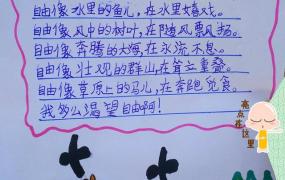 自由像水里的鱼儿,在水里嬉戏。
自由像风中的树叶,在随风飘扬。
自由像奔腾的大海,在永流不息。
自由像壮观的群山,在耸立重叠。
自由像草原上的马儿,在奔跑觅食。
我多么渴望自由啊!
亮点在这里